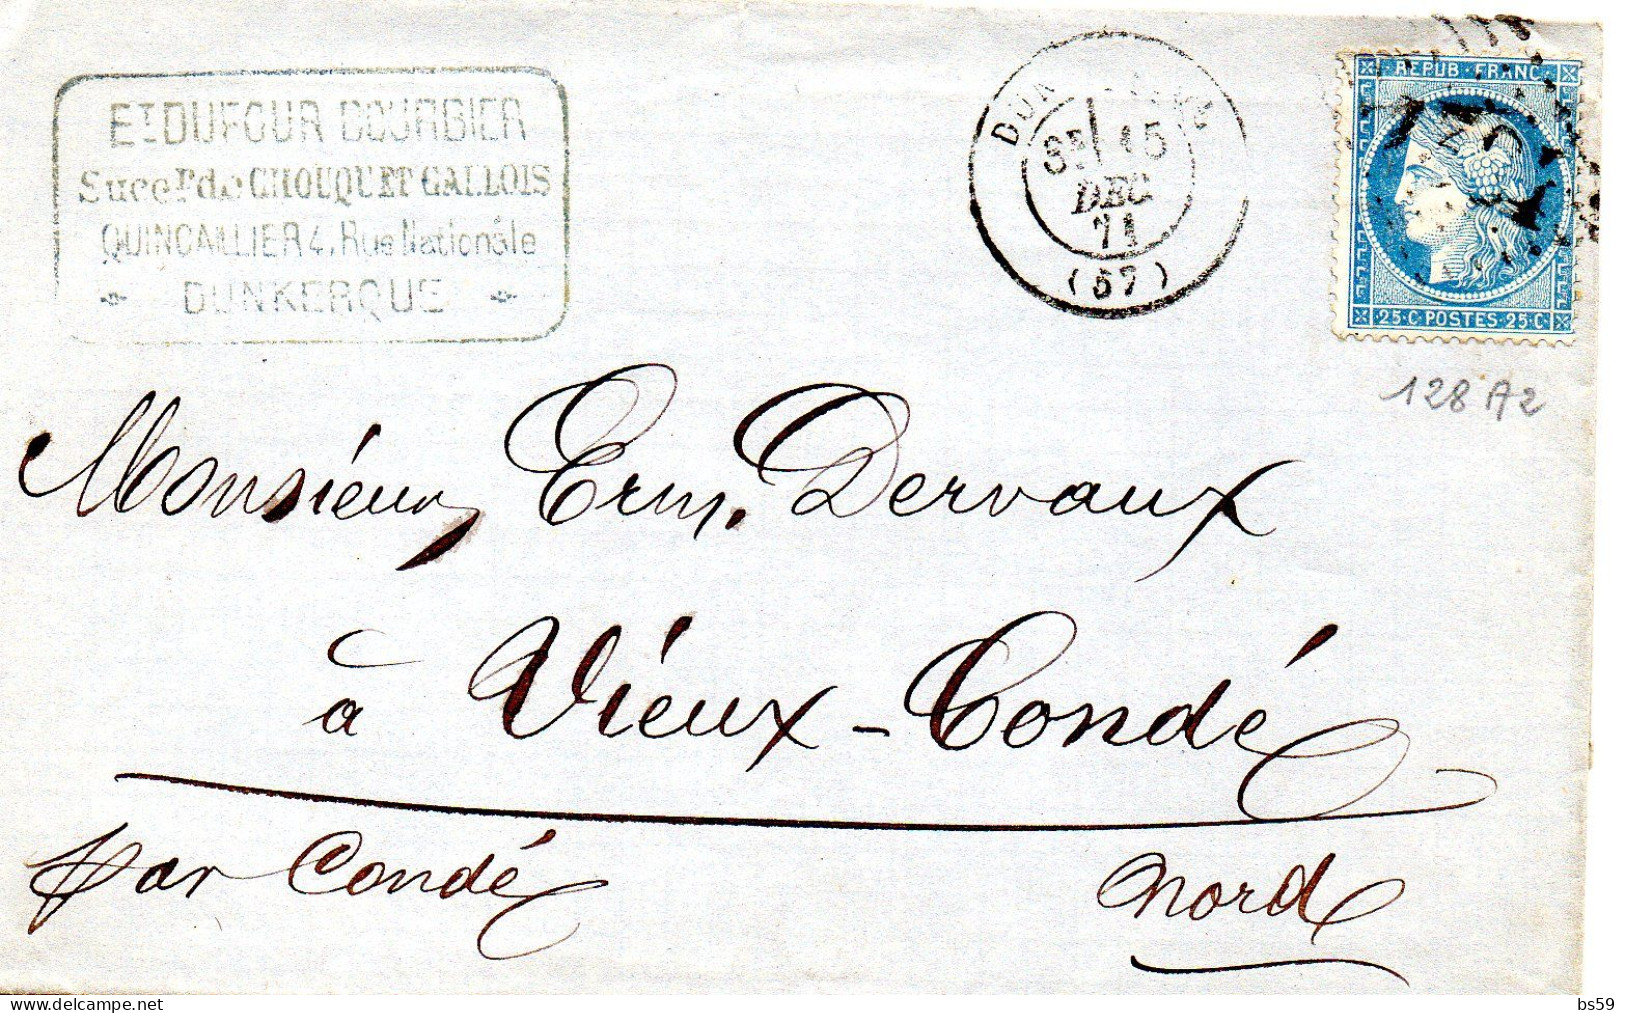 ET DUFOUR BOURBIER
Succr de CHOUQUET GALLOIS
QUINCAILLIER 4, Rue Nationale
DUNKERQUE
DUNKERQUE
5E 15
DEC
71
(57)
REPUB FRANC
25 C POSTES 25 C
128 A2
Monsieur, Ern. Dervaux
à Vieux-Condé
par Condé
Nord
www.delcampe.net
bs59